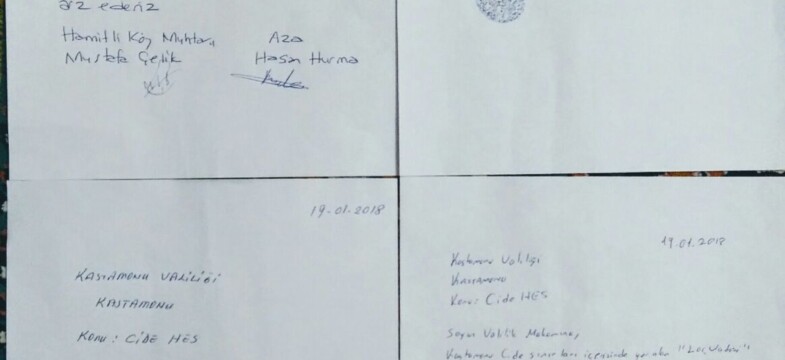 arz ederiz
Hamitli Köy Muhtarı
Mustafa Çelik
Aza
Hasan Hurma
19-01-2018
KASTAMONU VALİLİĞİ
KASTAMONU
Konu: CİDE HES
19.01.2018
Kastamonu Valiliği
Kastamonu
Konu: Cide HES
Sayın Valilik Makamına,
Kastamonu Cide sınırları içerisinde yer alan "Loç Vadisi"